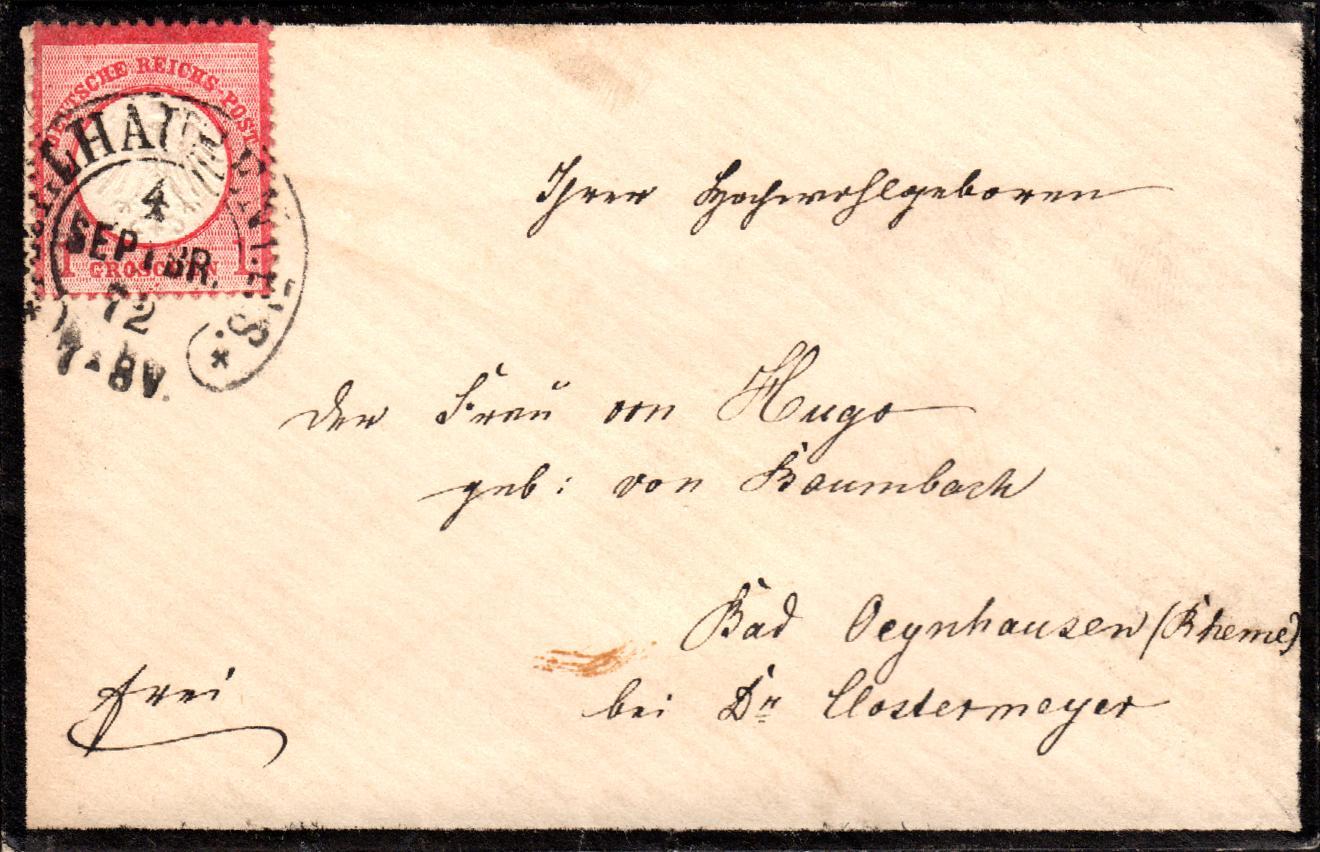 DEUTSCHE REICHS-POST
1 GROSCHEN 1
4
SEPTBR.
72
7-8V.
Ihrer Hochwohlgeboren
der Frau von Hugo
geb: von Baumbach
Bad Oeynhausen (Rheme)
bei Dr Clostermeyer
frei